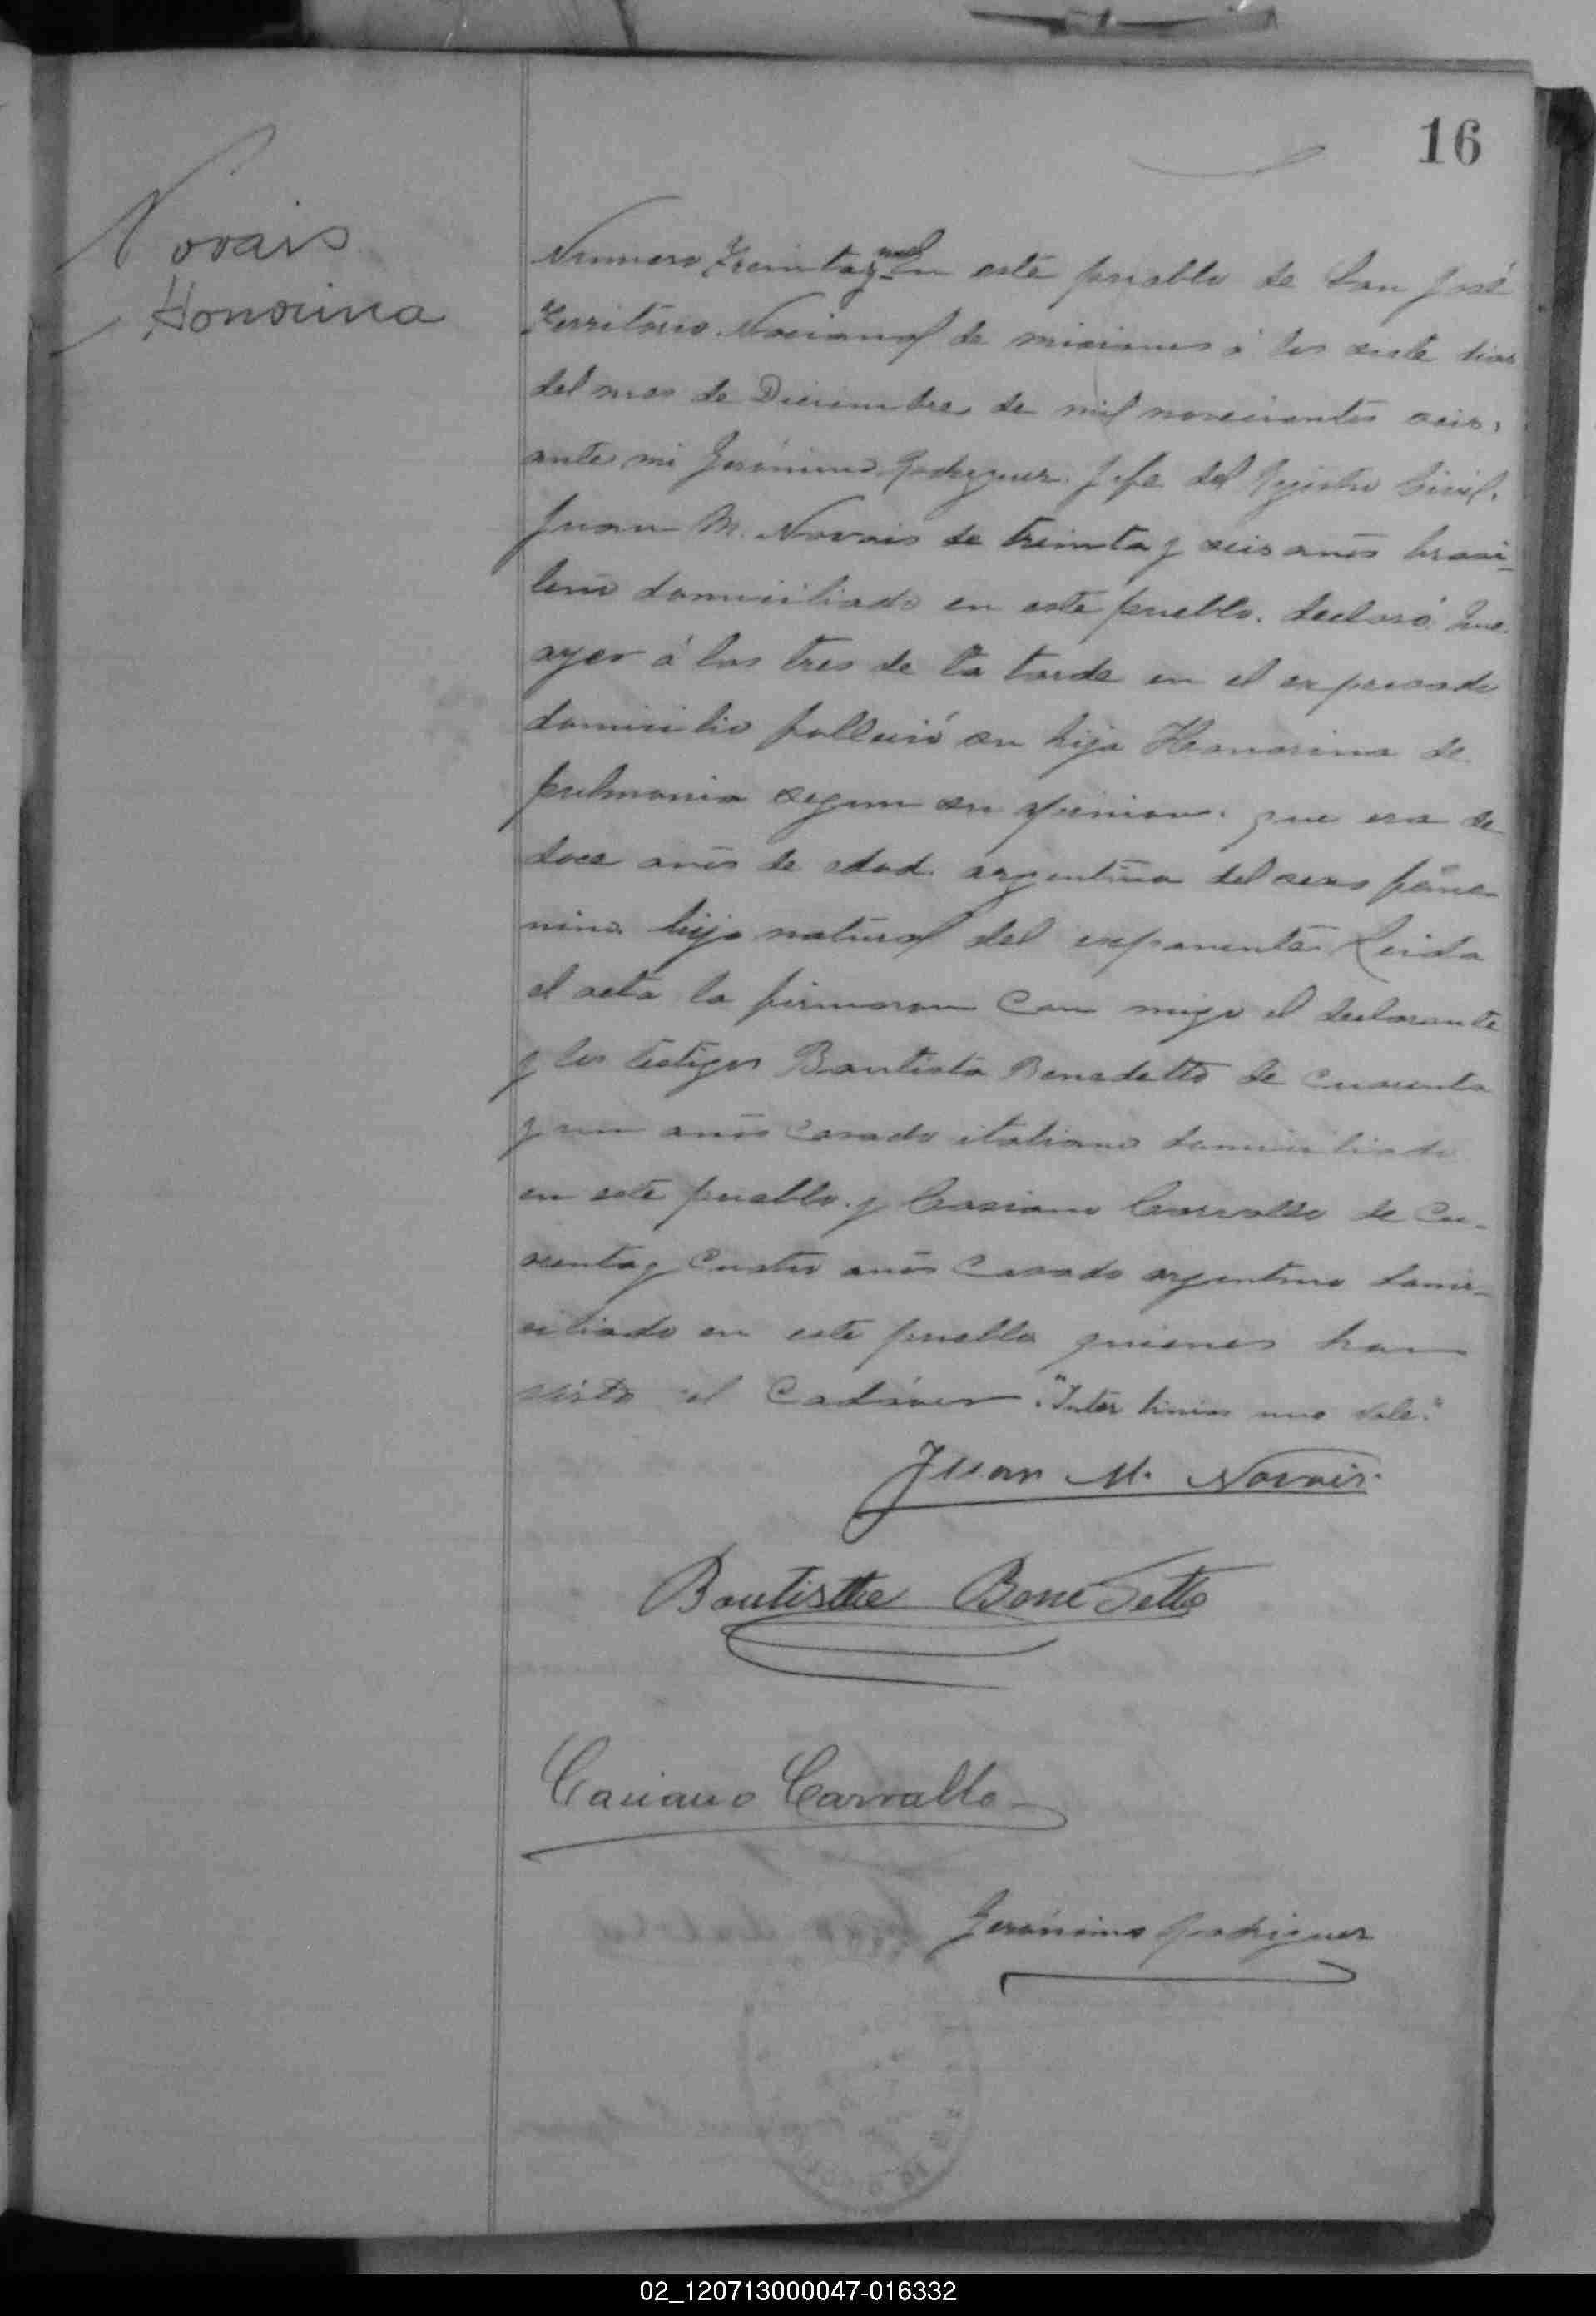 16
Novais
Honorina
Numero Treinta y una En este pueblo de San José
Territorio Nacional de misiones á los siete dias
del mes de Diciembre de mil novecientos seis,
ante mi Jerónimo Rodriguez Jefe del Rejistro Civil.
Juan M. Novais de treinta y seis anos brasi-
lero domiciliado en este pueblo. declaró Que
ayer á las tres de la tarde en el expresado
domicilio falleció su hija Honorina de
pulmonia segun su opinion. que era de
doce anos de edad argentina del sexo feme-
nino hija natural del exponente Leida
el acta la firmaron Con migo el declarante
y los testigos Bautista Benedetto de cuarenta
y un anos Casado italiano domiciliado
en este pueblo. y Casiano Carvallo de Cu-
arenta y Cuatro anos Casado argentino domi-
ciliado en este pueblo quienes han
visto el Cadáver. "Inter linias una vale."
Juan M. Novais.
Bautista Benedetto
Casiano Carvallo
Jerónimo Rodriguez
02_120713000047-016332